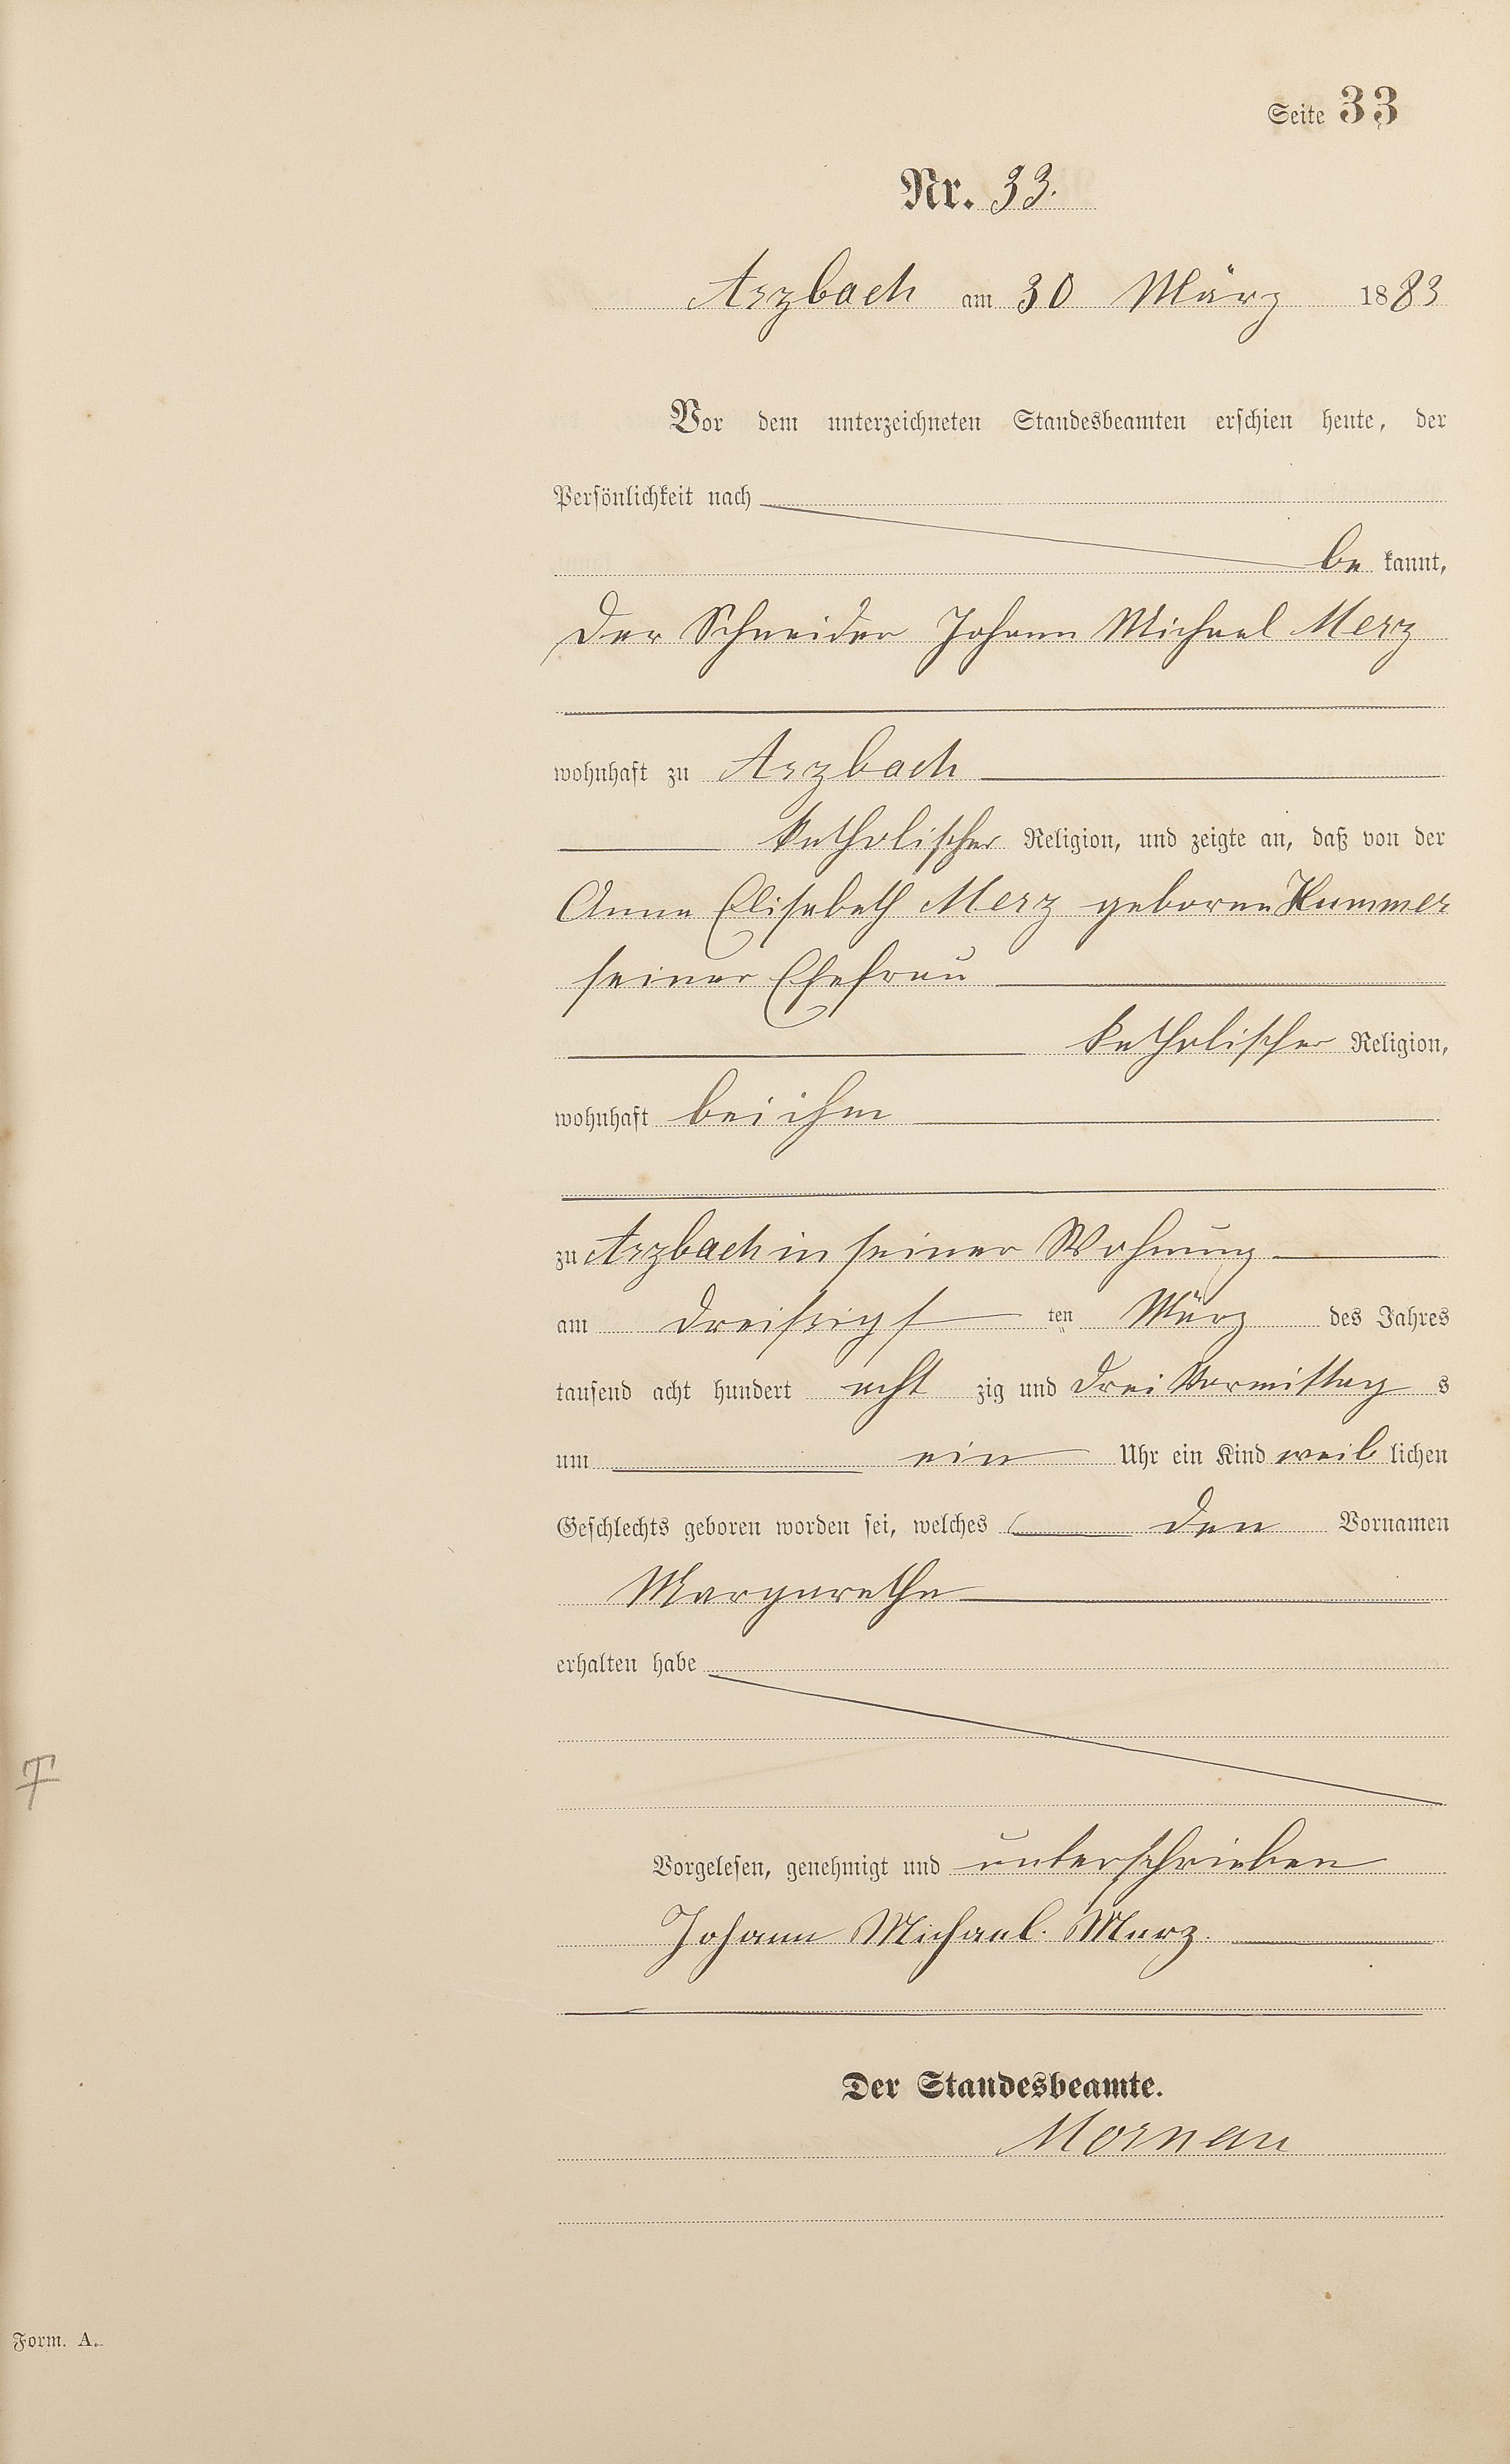 Seite 33
Nr. 33.
Arzbach am 30 März 1883
Vor dem unterzeichneten Standesbeamten erschien heute, der
Persönlichkeit nach
be kannt,
der Schneider Johann Michael Merz
wohnhaft zu Arzbach
katholischer Religion, und zeigte an, daß von der
Anna Elisabeth Merz geborne Kummer
seiner Ehefrau
katholischer Religion,
wohnhaft bei ihm
zu Arzbach in seiner Wohnung
am dreißigsten März des Jahres
tausend acht hundert acht zig und drei Vormittag s
um ein Uhr ein Kind weib lichen
Geschlechts geboren worden sei, welches den Vornamen
Margarethe
erhalten habe
Vorgelesen, genehmigt und unterschrieben
Johann Michael. Merz.
Der Standesbeamte.
Mornau
Form. A.